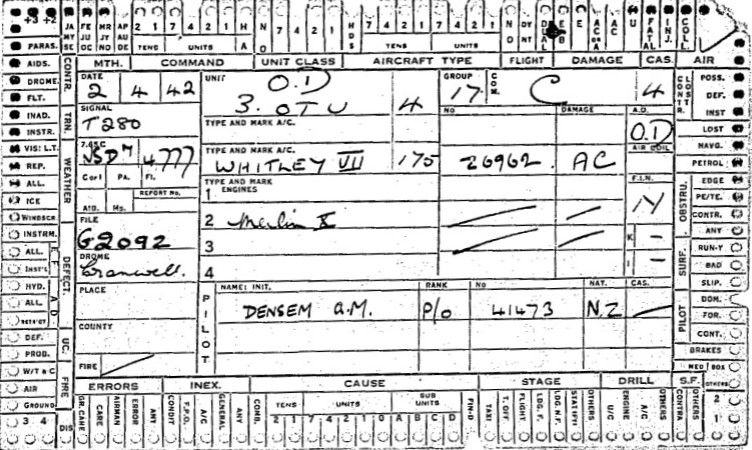 +3 +2 JA FE MR AP 4 2 1 7 4 2 1 H NO 7 4 2 1 HDS 7 4 2 1 7 4 2 1 NO DY NT DUAL AC AC U FATAL INJ. COLL.
MY JU JY AU TENS UNITS A TENS UNITS
PARAS. CONTR. MTH. COMMAND UNIT CLASS AIRCRAFT TYPE FLIGHT DAMAGE CAS. AIR
AIDS. DATE UNIT O.D GROUP COM. POSS.
DROME 2 4 42 3. OTU 4 17 C 4 DEF.
FLT. SIGNAL TYPE AND MARK A/C. NO DAMAGE A.D. INST
INAD. TRN. T280 O.D LOST
INSTR. 7.65C TYPE AND MARK A/C. AIR COIL NAVG.
VIS: L.T. 4777 WHITLEY VII 175 26962. AC PETROL
REP. WEATHER C or I PA. FI. TYPE AND MARK ENGINES F.I.N. EDGE
ALL. REPORT No. 1 N OBSTRU. PE/TE.
ICE AID. Ms. CONTR.
WINDSCR. FILE 2 Merlin X ANY
INSTRM. G2092 3 K - RUN-Y
ALL. DEFECT. DROME I - SURF. BAD
INST'L Cranwell. 4 SLIP.
HYD. PLACE PILOT NAME: INIT. RANK No NAT. CAS. DOM.
ALL. DENSEM A.M. P/O 41473 N.Z PILOT FOR.
COUNTY CONT.
DEF. UC. BRAKES
PROB. FIRE MED BOX
W/T & C FIRE ERRORS INEX. CAUSE STAGE DRILL S.F. OTHERS
AIR GR. CARE CARE AIRMAN ERROR ANY CONDIT F.P.O. A/C GENERAL ANY COMB. TENS UNITS SUB UNITS FIN-D TAXI T. OFF FLIGHT LDG. F. LDG. N.F. OTHERS U/C ENGINE A/C OTHERS CONTRA OTHERS 2
GROUND 7 4 2 1 0 A B C D 1
3 4 DIS